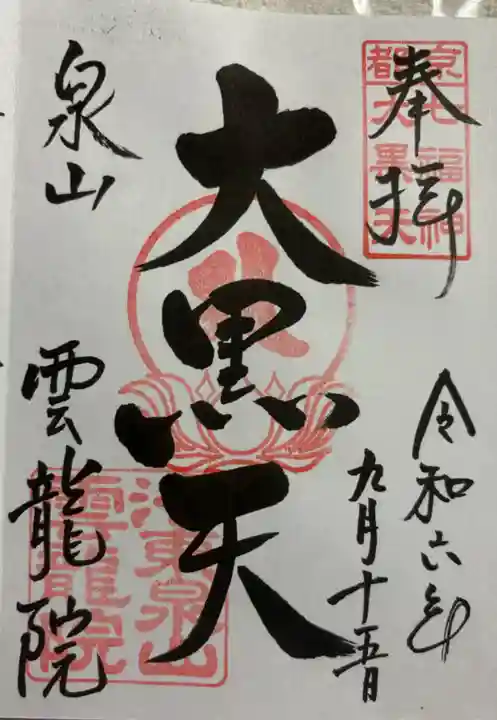 奉拝
京七福神
都大黒天
令和六年
九月十五日
大黒天
泉山 雲龍院
泉山
雲龍院